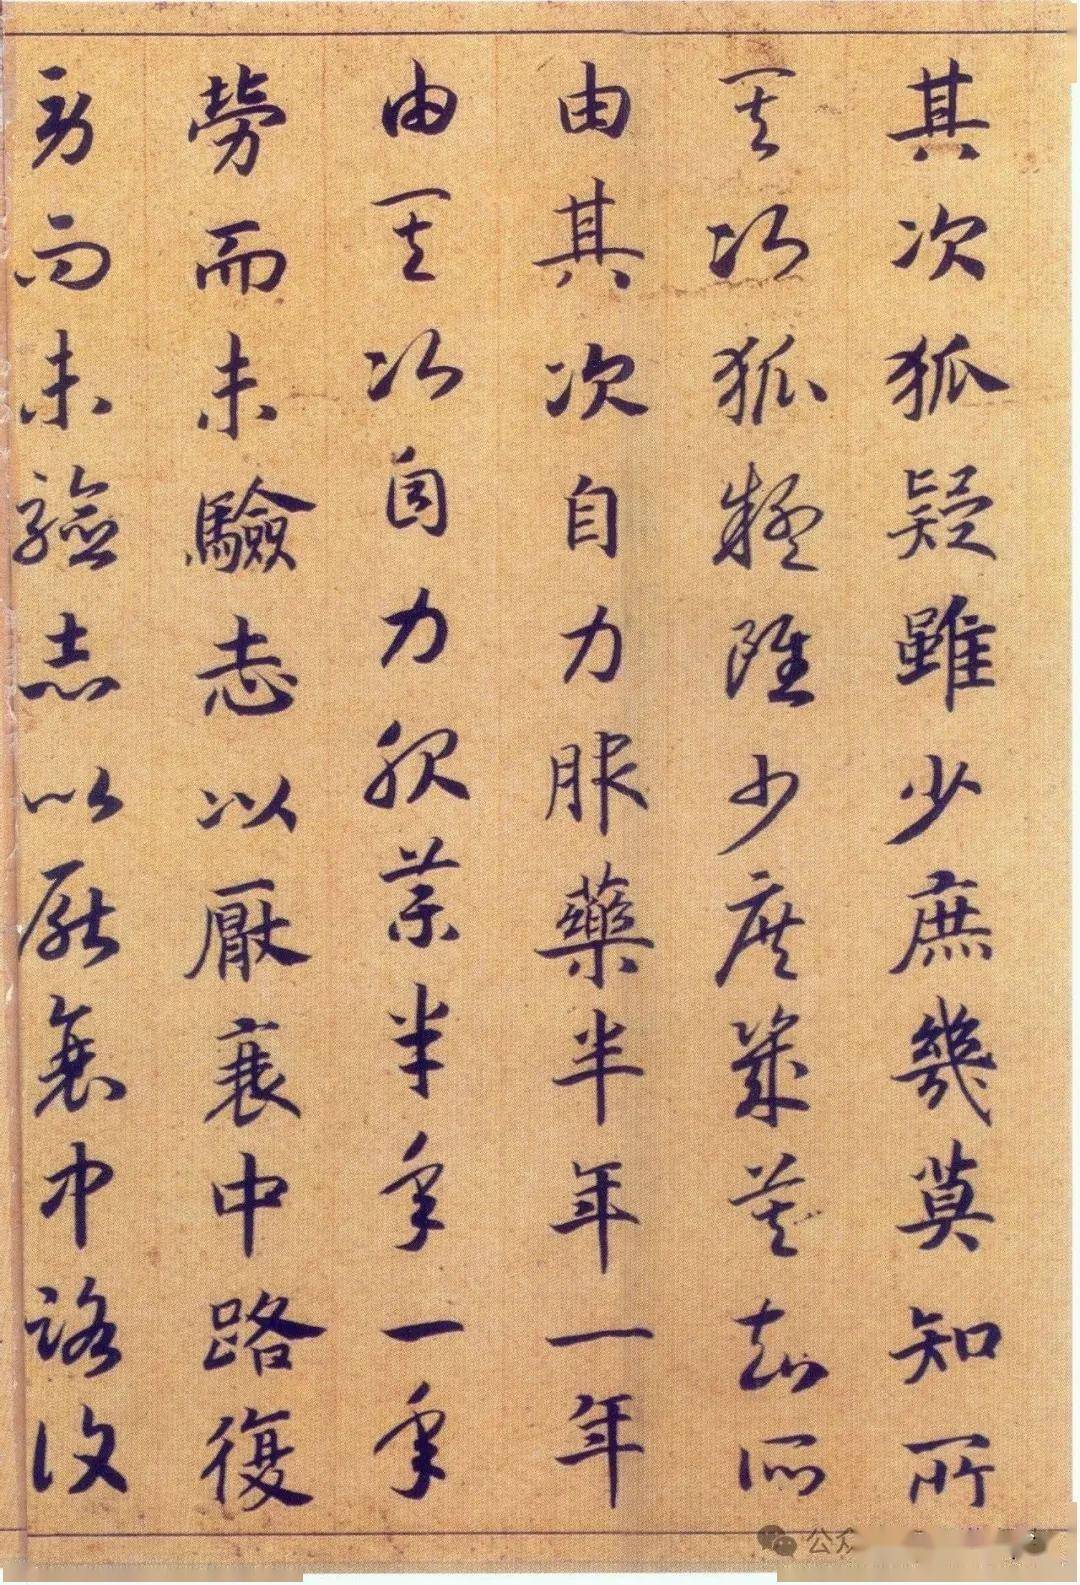 其次狐疑雖少庶幾莫知所
其次狐疑雖少庶幾莫知所
由其次自力服藥半年一年
由其次自力服藥半年一年
勞而未驗志以厭衰中路復
勞而未驗志以厭衰中路復
公众